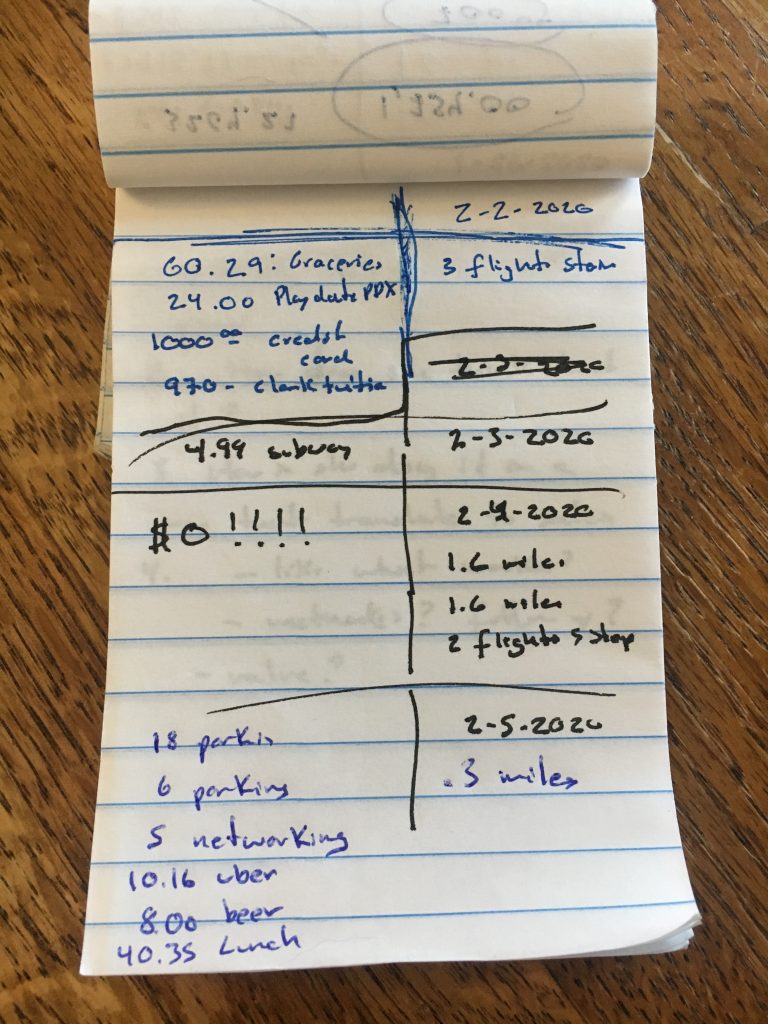 2-2-2020
60.29: Groceries
3 flights
24.00 Playdate PDX
1000 00 credit
card
2-3-2020
970 - clark tuition
4.99 subway
2-3-2020
$0 !!!!
2-4-2020
1.6 miles
1.6 miles
2 flights
2-5-2020
18 parkin
.3 miles
6 parking
5 networking
10.16 uber
8.00 beer
40.35 Lunch